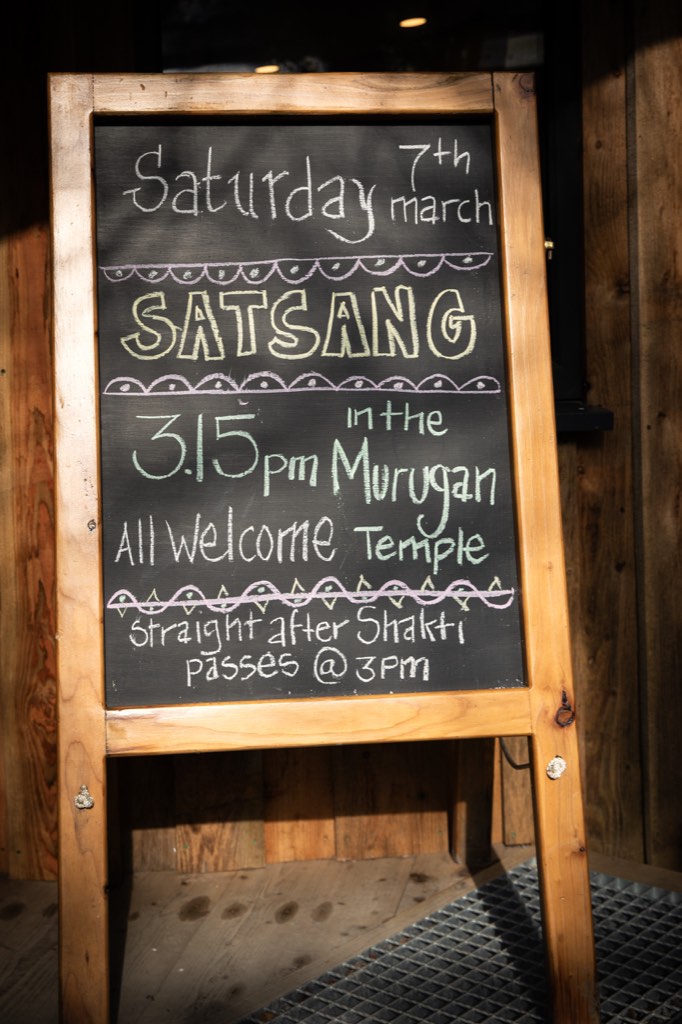 Saturday 7th march
SATSANG
3.15pm in the Murugan Temple
All Welcome
straight after Shakti
passes @ 3pm